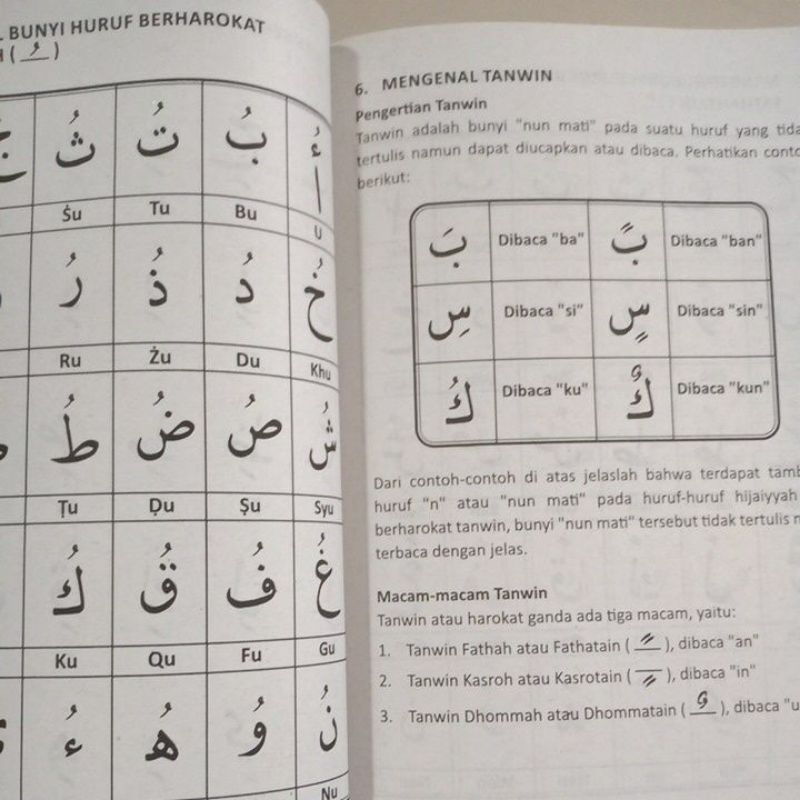 BUNYI HURUF BERHAROKAT
( ُ )
ثُ تُ بُ أُ
Śu Tu Bu U
رُ ذُ دُ خُ
Ru Żu Du Khu
طُ ضُ صُ شُ
Ṭu Ḍu Ṣu Syu
كُ قُ فُ غُ
Ku Qu Fu Gu
ءُ هُ وُ نُ
Nu
6. MENGENAL TANWIN
Pengertian Tanwin
Tanwin adalah bunyi "nun mati" pada suatu huruf yang
tertulis namun dapat diucapkan atau dibaca. Perhatikan
berikut:
بَ Dibaca "ba" بً Dibaca "ban"
سِ Dibaca "si" سٍ Dibaca "sin"
كُ Dibaca "ku" كٌ Dibaca "kun"
Dari contoh-contoh di atas jelaslah bahwa terdapat
huruf "n" atau "nun mati" pada huruf-huruf hijaiyyah
berharokat tanwin, bunyi "nun mati" tersebut tidak tertulis
terbaca dengan jelas.
Macam-macam Tanwin
Tanwin atau harokat ganda ada tiga macam, yaitu:
1. Tanwin Fathah atau Fathatain ( ً ), dibaca "an"
2. Tanwin Kasroh atau Kasrotain ( ٍ ), dibaca "in"
3. Tanwin Dhommah atau Dhommatain ( ٌ ), dibaca